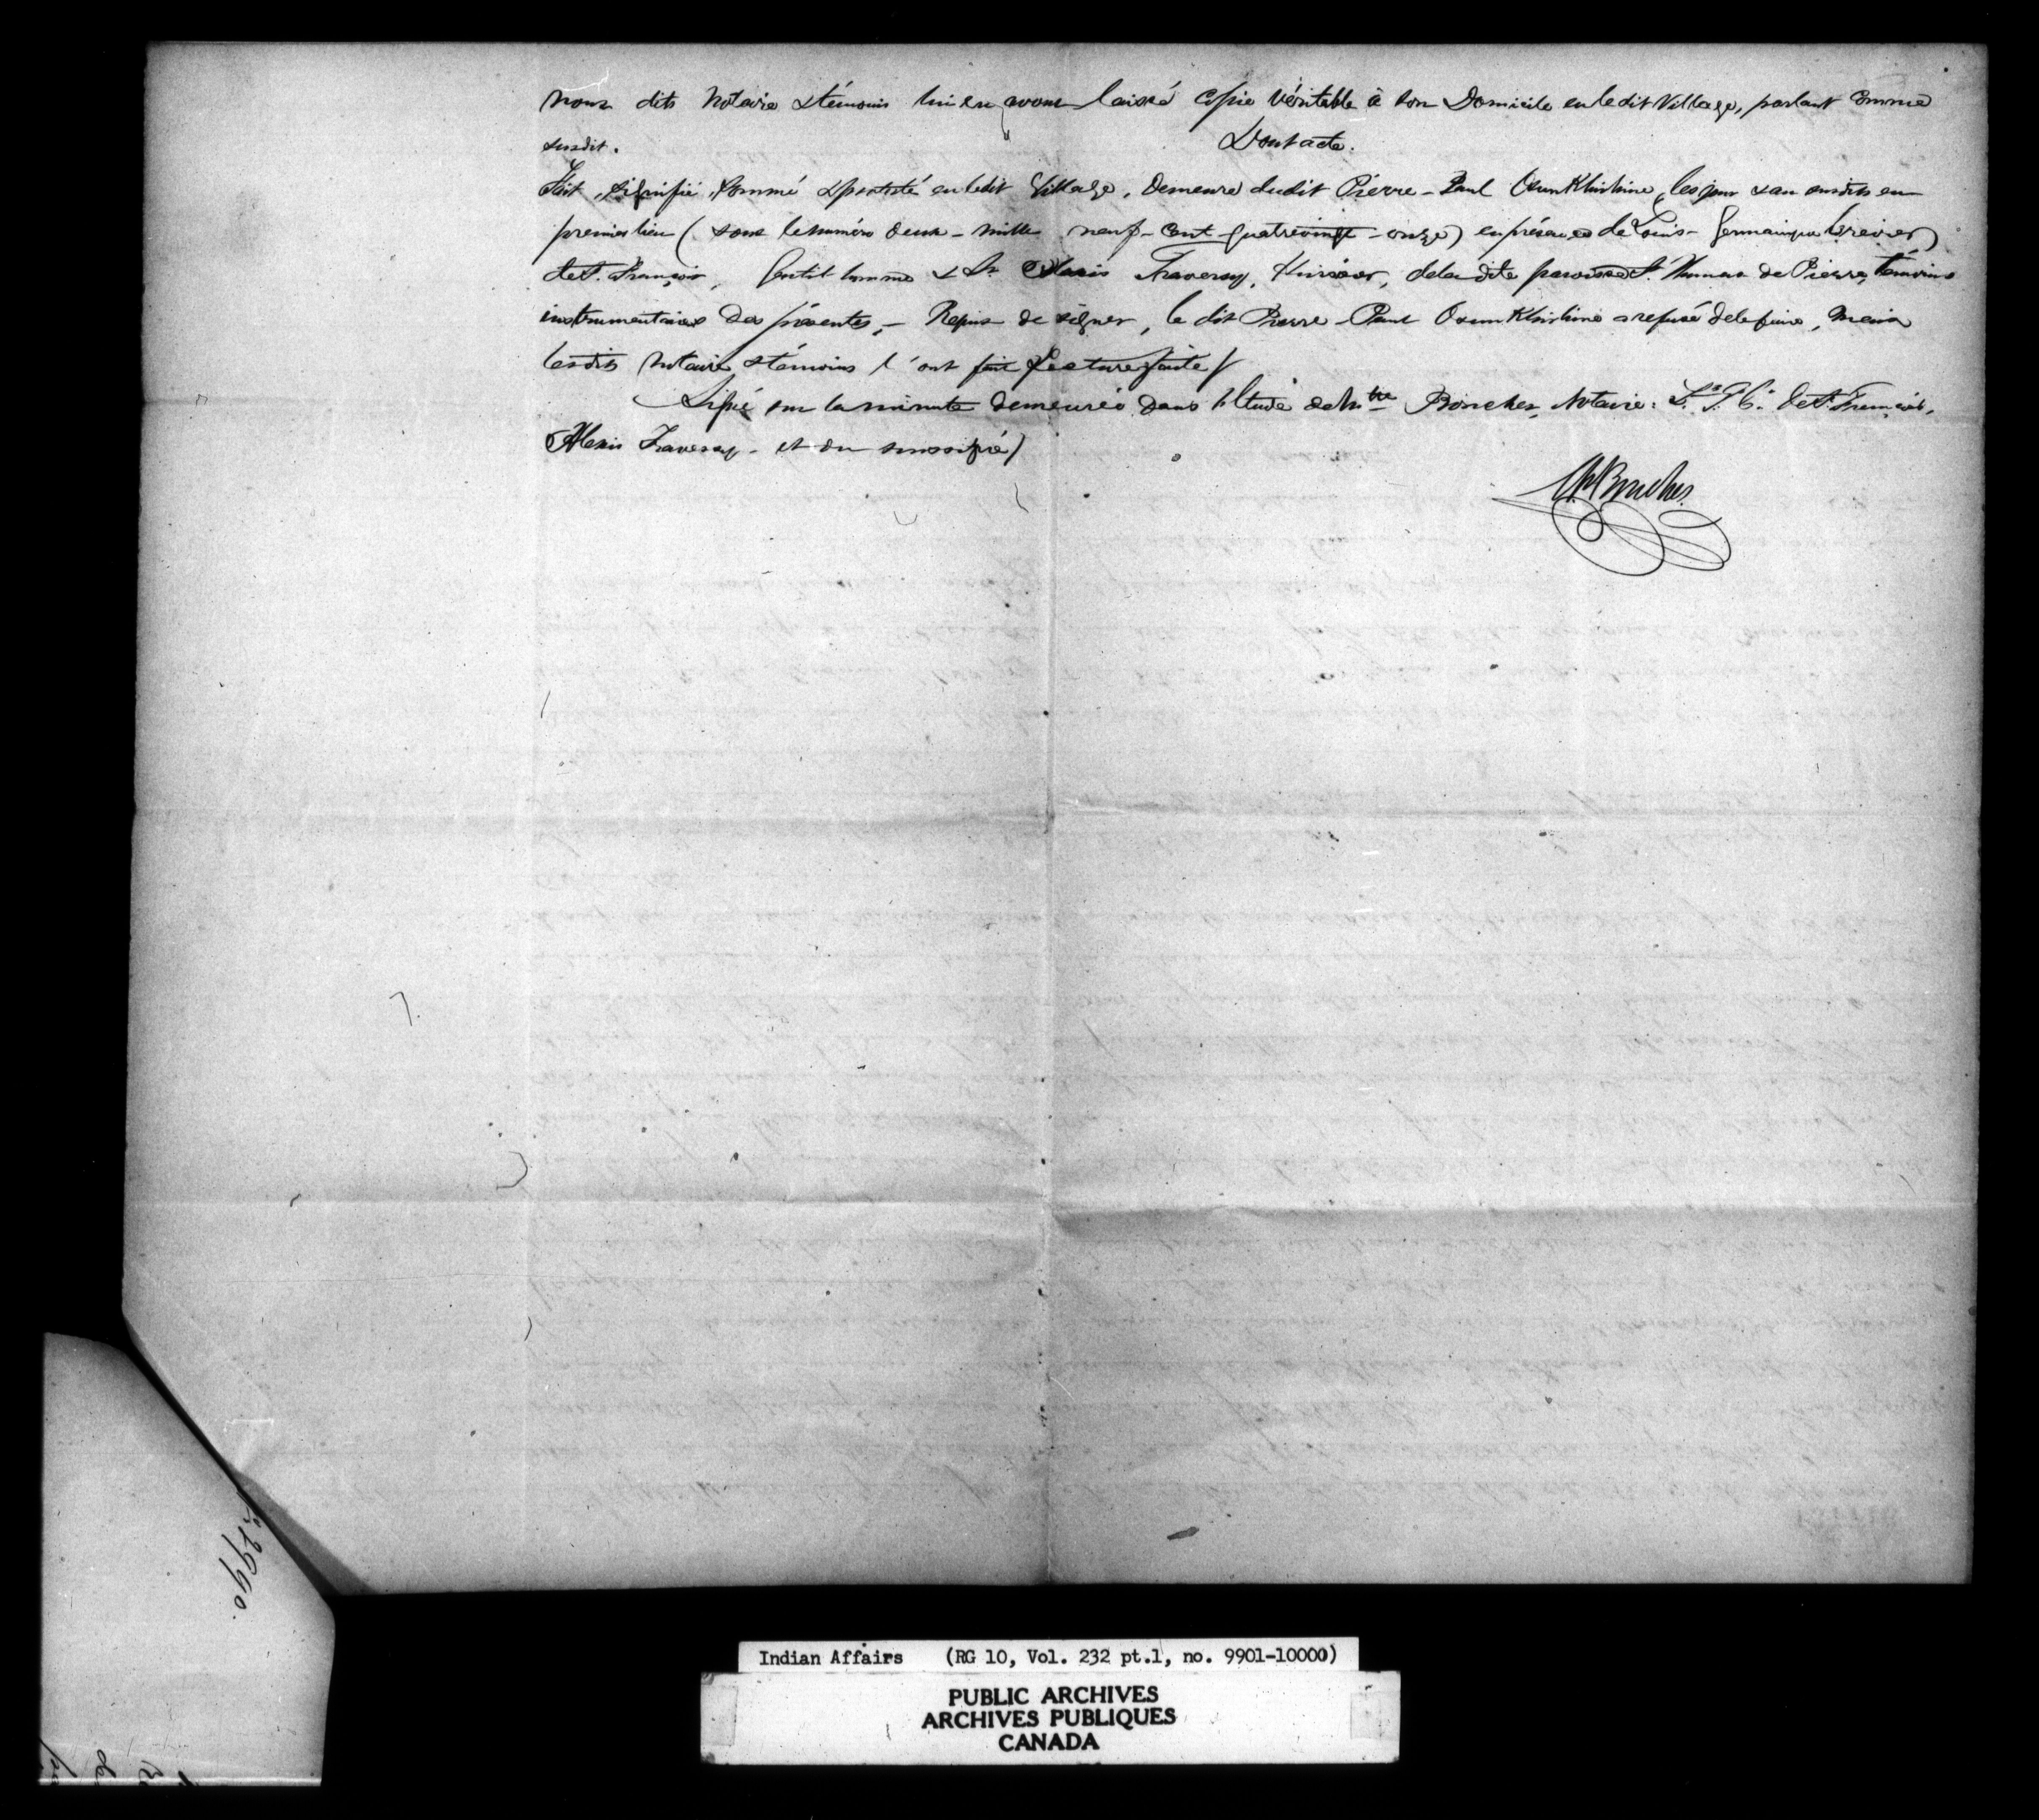 nous dits Notaire & témoins lui en avons laissé copie véritable à son Domicile en ledit Village, parlant comme
susdit. Dont acte.
Fait, signifié, sommé & protesté en ledit Village, demeure dudit Pierre-Paul Osunkhirhine, les jour & an susdits en
premier lieu (sous le numéro deux-mille neuf-cent-quatrevingt-onze) en présence de Louis- Crevier
de St. François, Gentilhomme & Sr. Alexis Traversy, Huissier, de la dite paroisse St. Thomas de Pierre, témoins
instrumentaires des présentes,- Requis de signer, le dit Pierre-Paul Osunkhirhine a refusé de le faire, mais
lesdits notaire & témoins l'ont fait Lecture faite/
Signé sur la minute demeurée dans l'Etude de Mtre Boucher, Notaire: L. G. C. de St. François,
Alexis Traversy - et du soussigné/
Boucher
2990.
Indian Affairs (RG 10, Vol. 232 pt.1, no. 9901-10000)
PUBLIC ARCHIVES
ARCHIVES PUBLIQUES
CANADA